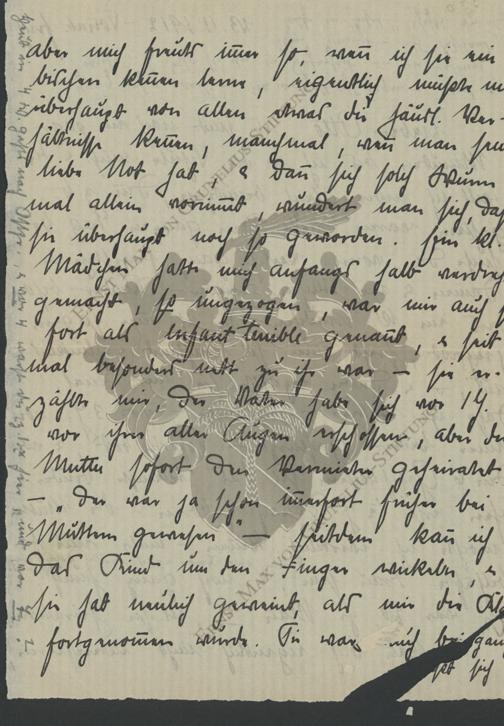 aber mich freuts immer so, wenn ich sie ein
bischen kennen lerne, eigentlich müßte m
überhaupt von allen etwas die häusl. Ver-
hältnisse kennen, manchmal, wenn man sein
liebe Not hat, & dann sich solch Wurm
mal allein vornimmt, wundert man sich, daß
sie überhaupt noch so geworden. Ein kl.
Mädchen hatte mich anfangs halb verdreht
gemacht, so ungezogen, war mir auch so
fort als enfant terrible genannt, & seit
mal besonders nett zu ihr war – sie er-
zählte mir, der Vater habe sich vor 14.
vor ihrer aller Augen erschossen, aber die
Mutter sofort den Vermieter geheiratet
– "der war ja schon immerfort früher bei
Muttern gewesen" – seitdem kann ich
das Kind um den Finger wickeln, &
sie hat neulich geweint, als mir die Kl
fortgenommen wurde. Sie war auch bei
hat sich